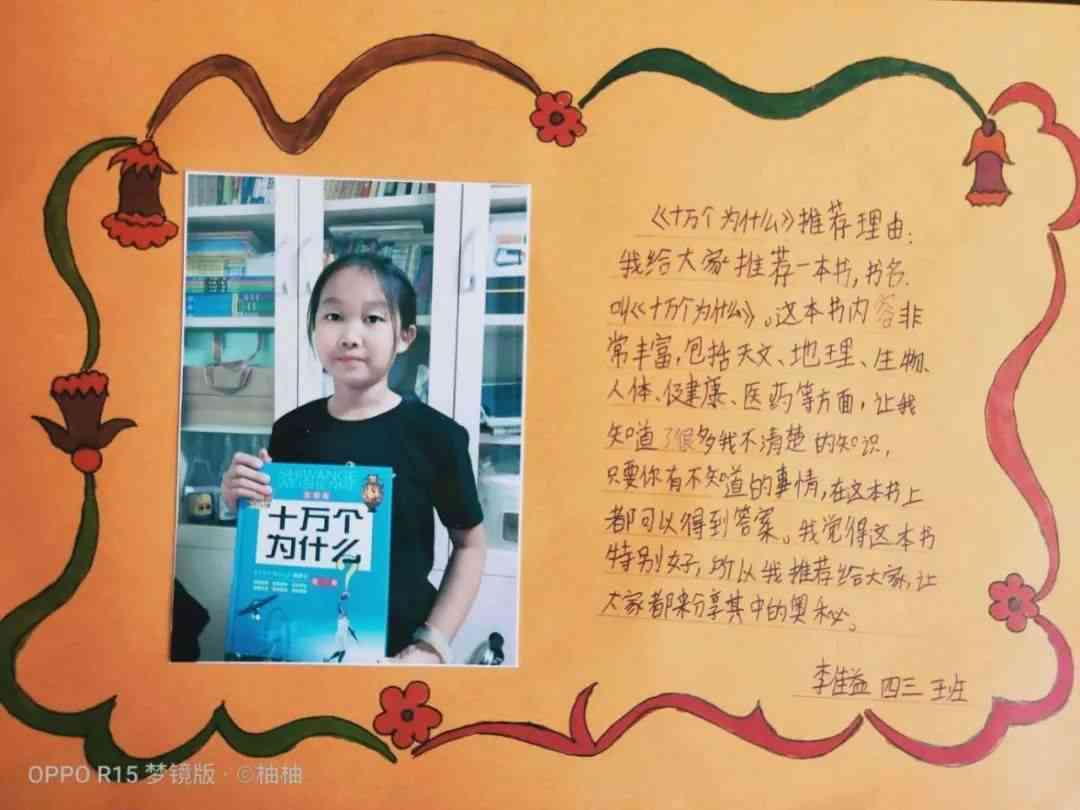 十万个
为什么
《十万个为什么》推荐理由:
我给大家推荐一本书,书名
叫《十万个为什么》。这本书内容非
常丰富,包括天文、地理、生物、
人体、健康、医药等方面,让我
知道了很多我不清楚的知识,
只要你有不知道的事情,在这本书上
都可以得到答案。我觉得这本书
特别好,所以我推荐给大家,让
大家都来分享其中的奥秘。
李佳益 四三班
OPPO R15 梦镜版 · ©柚柚